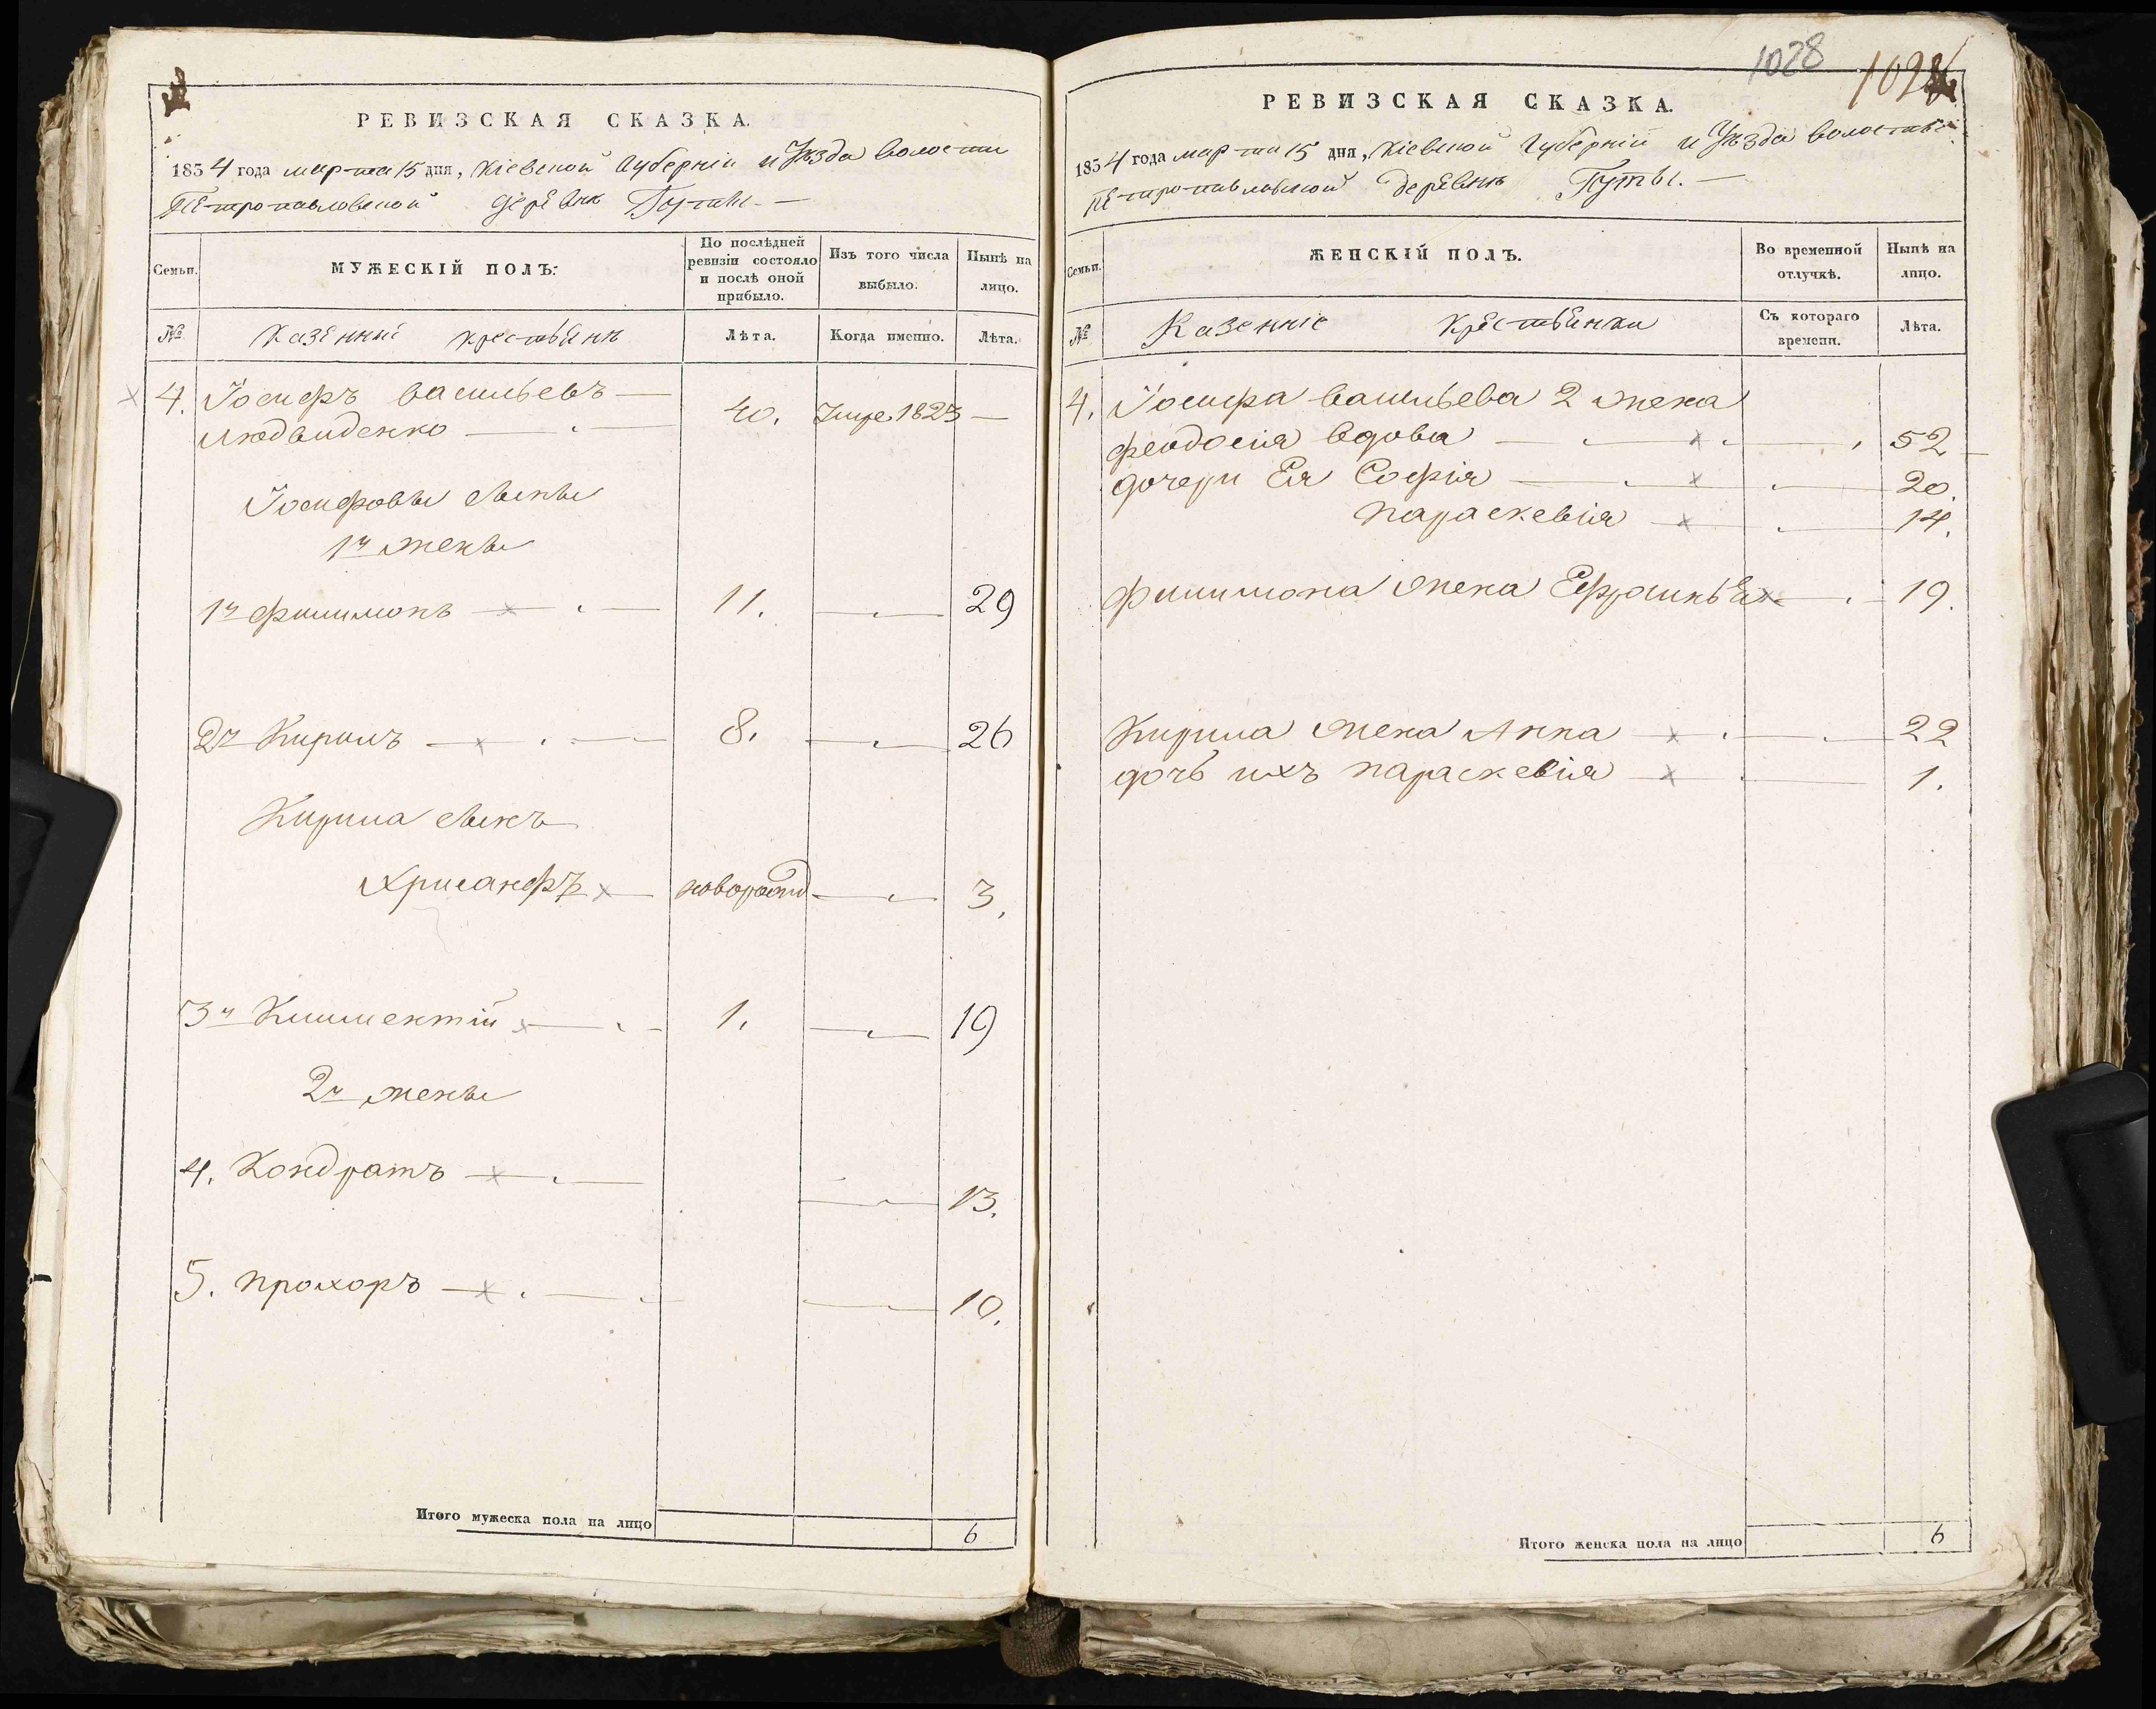 РЕВИЗСКАЯ СКАЗКА.
1854 года марта 15 дня, Кіевской Губерніи и Уѣзда волости
Петропавловской деревни Путы. —
Семьи.
МУЖЕСКІЙ ПОЛЪ.
По послѣдней
ревизіи состояло
и послѣ оной
прибыло.
Изъ того числа
выбыло.
Нынѣ на
лицо.
№
Казенніе крестьяне
Лѣта.
Когда именно.
Лѣта.
4. Іосифъ васильевъ —
40. 1823 —
Іосифовы сыны
1й жены
1й филимонъ — 11. — 29
2й Кирилъ — 8. — 26
Кирила сынъ
Хрисанфъ — новорожд — 3.
3й Климентій — 1. — 19
2й жены
4. Кондратъ — 13.
5. прохоръ — 10.
Итого мужеска пола на лицо 6
1028
РЕВИЗСКАЯ СКАЗКА.
1854 года марта 15 дня, Кіевской Губерніи и Уѣзда волости
петропавловской деревни Путы. —
Семьи.
ЖЕНСКІЙ ПОЛЪ.
Во временной
отлучкѣ.
Нынѣ на
лицо.
№
Казенніе Крестьянки
Съ котораго
времени.
Лѣта.
4. Іосифа васильева 2 жена
феодосія вдова — 52
дочери Ея Софія — 20.
параскевія — 14.
филимона жена — 19.
Кирила жена Анна — 22
дочь ихъ параскевія — 1.
Итого женска пола на лицо 6